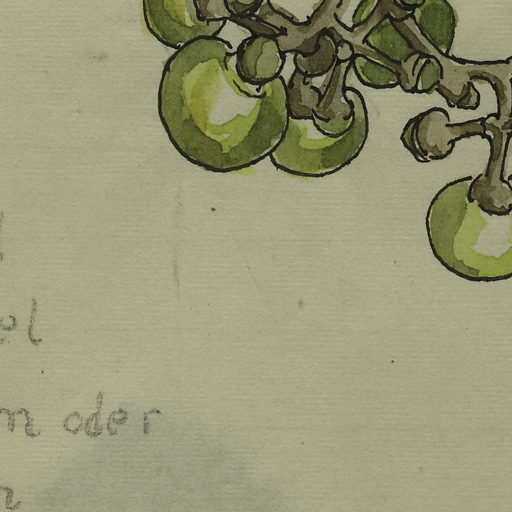 el
n oder
n